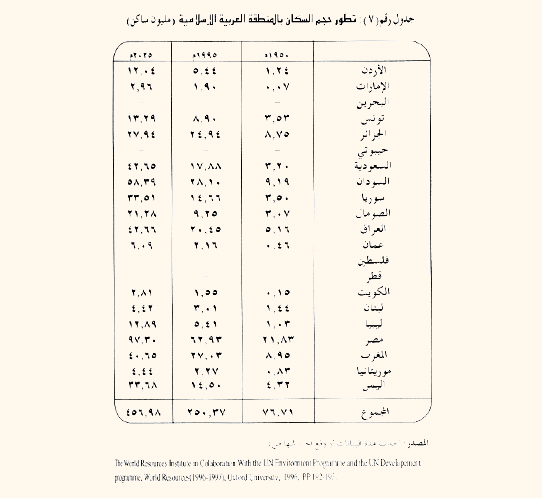 جدول رقم (٧) : تطور حجم السكان بالمنطقة العربية الإسلامية (مليون ساكن)
١٩٥٠م ١٩٩٥م ٢٠٢٥م
الأردن ١,٢٤ ٥,٤٤ ١٢,٠٤
الإمارات ٠,٠٧ ١,٩٠ ٢,٩٦
البحرين – – –
تونس ٣,٥٣ ٨,٩٠ ١٣,٢٩
الجزائر ٨,٧٥ ٢٤,٩٤ ٢٧,٩٤
جيبوتي – – –
السعودية ٣,٢٠ ١٧,٨٨ ٤٢,٦٥
السودان ٩,١٩ ٢٨,١٠ ٥٨,٣٩
سوريا ٣,٥٠ ١٤,٦٦ ٣٣,٥١
الصومال ٣,٠٧ ٩,٢٥ ٢١,٢٨
العراق ٥,١٦ ٢٠,٤٥ ٤٢,٦٦
عمان ٠,٤٦ ٢,١٦ ٦,٠٩
فلسطين
قطر –
الكويت ٠,١٥ ١,٥٥ ٢,٨١
لبنان ١,٤٤ ٣,٠١ ٤,٤٢
ليبيا ١,٠٣ ٥,٤١ ١٢,٨٩
مصر ٢١,٨٣ ٦٢,٩٣ ٩٧,٣٠
المغرب ٨,٩٥ ٢٧,٠٣ ٤٠,٦٥
موريتانيا ٠,٨٣ ٢,٢٧ ٤,٤٤
اليمن ٤,٣٢ ١٤,٥٠ ٣٣,٦٨
المجموع ٧٦,٧١ ٢٥٠,٣٧ ٤٥٦,٩٨
المصدر :
The World Resources Institute in Collaboration With the UN Environment Programme and the UN Developement
programme, World Resources (1996-1997), Oxford University, 1996, PP